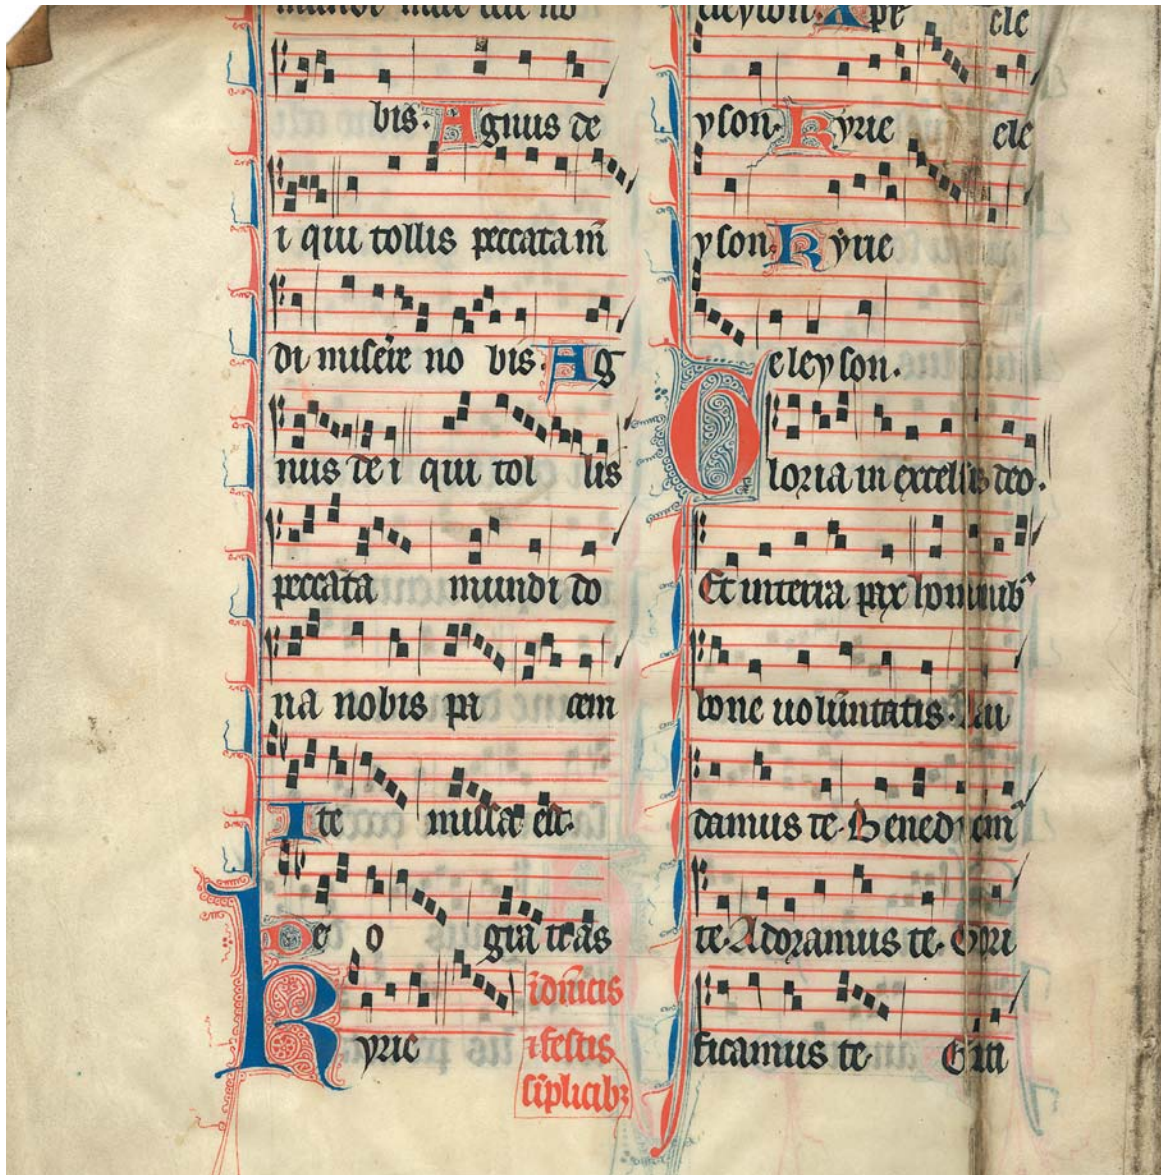 bis. Agnus de
i qui tollis peccata m̄
di misere no bis. Ag
nus de i qui tol lis
peccata mundi do
na nobis pa cem
Ite missa est.
De o gra tias
Kyrie
ī dn̄icis
⁊ festis
sīplicibꝫ
cleyson. Xpe ele
yson. Kyrie ele
yson. Kyrie
eleyson.
Gloria in excelsis deo.
Et in terra pax hominibꝰ
bone uoluntatis. Lau
damus te. Bened
te. Adoramus te. Glori
ficamus te.